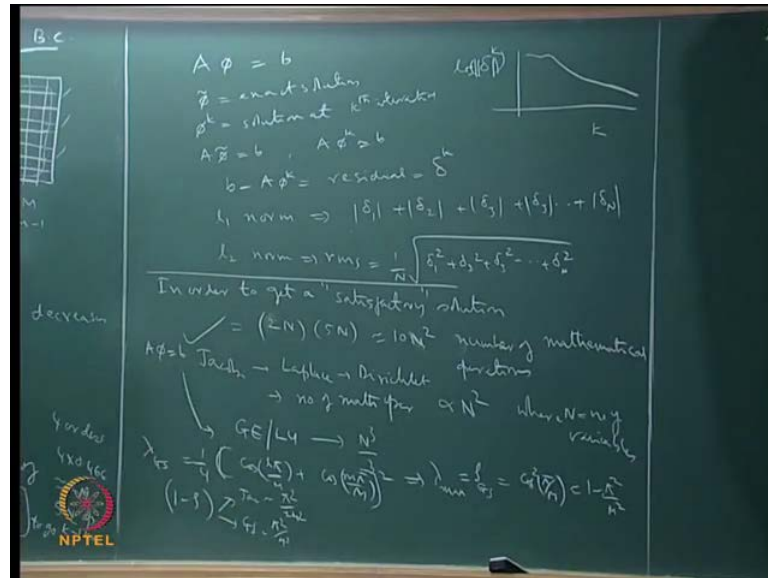 B.C.
M
decreases
4 orders
4x0.466
NPTEL
A φ = b
φ̃ = exact solution
φ^k = solution at k^th iteration
A φ̃ = b , A φ^k ≈ b
b - A φ^k = residual = δ^k
l₁ norm ⇒ |δ₁| + |δ₂| + |δ₃| + |δ₃| ... + |δ_N|
l₂ norm ⇒ rms = 1/N √(δ₁² + δ₂² + δ₃² - ... + δ_n²)
In order to get a "satisfactory" solution
= (2N) (5N) ≈ 10N² number of mathematical
operations
Aφ=b Jacobi → Laplace → Dirichlet
→ no of math oper ∝ N² where N = no of
variables
GE/LU → N³/3
λ_GS = 1/4 ( cos(lπ/L) + cos(mπ/M) )² ⇒ λ_max = ρ_GS = cos²(π/M) = 1 - π²/M²
(1-ρ) Jac ~ π²/2M²
GS ~ π²/M²
log|δ^k|
k